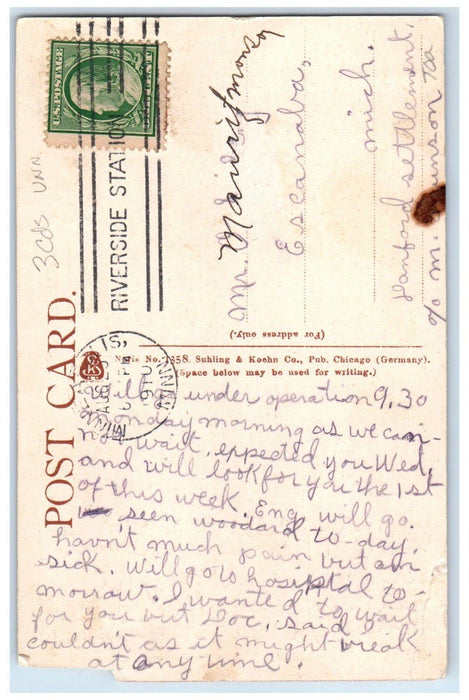 U.S. POSTAGE
ONE CENT
RIVERSIDE STATION
3cds UNN
POST CARD.
MINNEAPOLIS, MINN.
AUG
1910
Mauritzmonson
Mr.
Escanaba,
mich.
Danford settlement,
c/o M.
(For address only.)
No. 1258. Suhling & Koehn Co., Pub. Chicago (Germany).
(Space below may be used for writing.)
Will under operation 9,30
monday morning as we can-
not wait. eppected you Wed.
and will look for you the 1st
of this week. Eng. will go.
seen woodard to-day.
havn't much pain but am
sick. will go to hosiptal to-
morrow. I wanted to wait
for you but Doc. said I
couldn't as it might break
at any time.